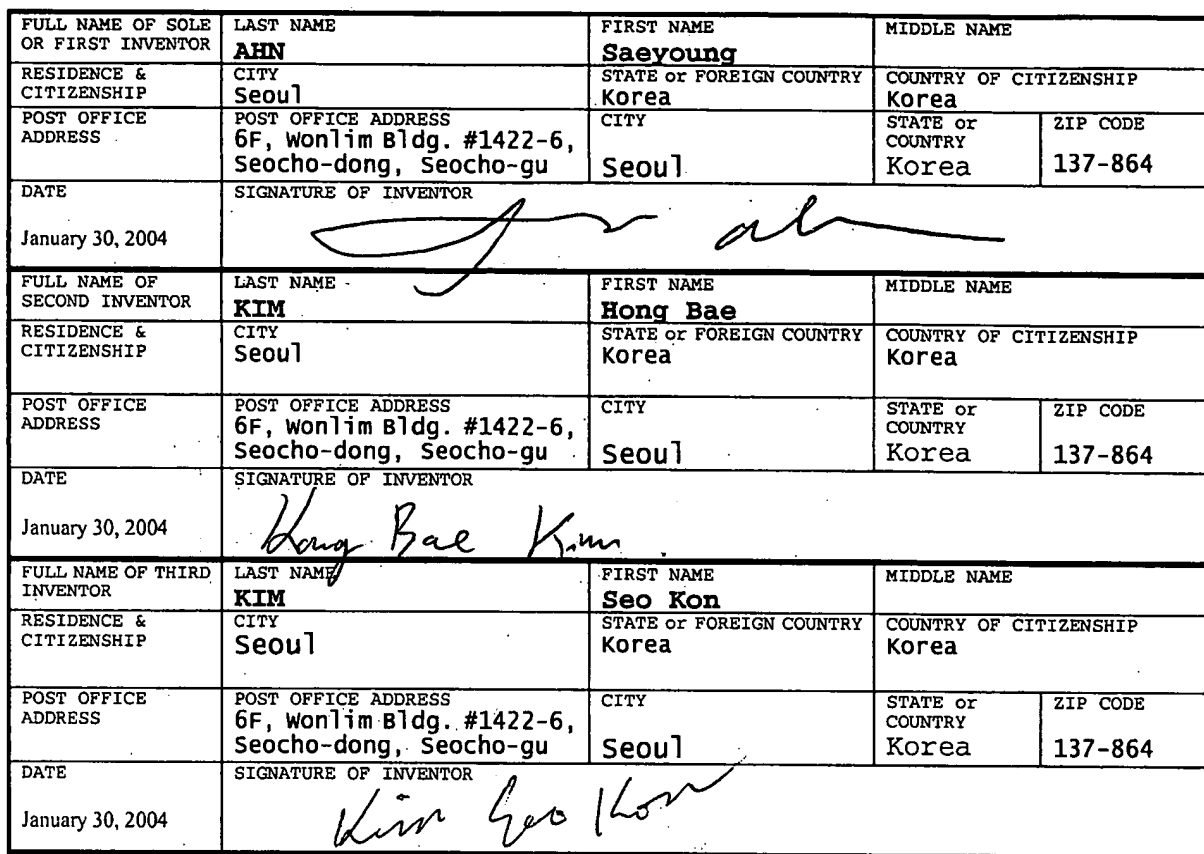 FULL NAME OF SOLE OR FIRST INVENTOR
LAST NAME
AHN
FIRST NAME
Saeyoung
MIDDLE NAME
RESIDENCE & CITIZENSHIP
CITY
Seoul
STATE or FOREIGN COUNTRY
Korea
COUNTRY OF CITIZENSHIP
Korea
POST OFFICE ADDRESS
POST OFFICE ADDRESS
6F, Wonlim Bldg. #1422-6,
Seocho-dong, Seocho-gu
CITY
Seoul
STATE or COUNTRY
Korea
ZIP CODE
137-864
DATE
January 30, 2004
SIGNATURE OF INVENTOR
FULL NAME OF SECOND INVENTOR
LAST NAME
KIM
FIRST NAME
Hong Bae
MIDDLE NAME
RESIDENCE & CITIZENSHIP
CITY
Seoul
STATE or FOREIGN COUNTRY
Korea
COUNTRY OF CITIZENSHIP
Korea
POST OFFICE ADDRESS
POST OFFICE ADDRESS
6F, Wonlim Bldg. #1422-6,
Seocho-dong, Seocho-gu
CITY
Seoul
STATE or COUNTRY
Korea
ZIP CODE
137-864
DATE
January 30, 2004
SIGNATURE OF INVENTOR
Hong Bae Kim
FULL NAME OF THIRD INVENTOR
LAST NAME
KIM
FIRST NAME
Seo Kon
MIDDLE NAME
RESIDENCE & CITIZENSHIP
CITY
Seoul
STATE or FOREIGN COUNTRY
Korea
COUNTRY OF CITIZENSHIP
Korea
POST OFFICE ADDRESS
POST OFFICE ADDRESS
6F, Wonlim Bldg. #1422-6,
Seocho-dong, Seocho-gu
CITY
Seoul
STATE or COUNTRY
Korea
ZIP CODE
137-864
DATE
January 30, 2004
SIGNATURE OF INVENTOR
Kim Seo Kon